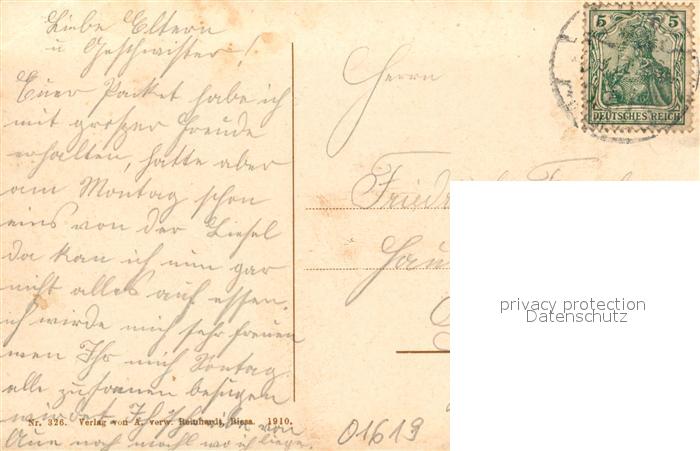 Liebe Eltern
u Geschwister!
Euer Packet habe ich
mit großer Freude
erhalten, hatte aber
am Montag schon
eins von der Liesel
da kan ich nun gar
nicht alles auf essen.
ich wirde mich sehr freuen
wen Ihr mich Sontag
alle zusamen besugen
wirdet
Aue noch mahl wo ich liege.
Nr. 326. Verlag von A. verw. Reinhardt, Riesa. 1910.
Herrn
5 5
DEUTSCHES REICH
privacy protection
Datenschutz
01619